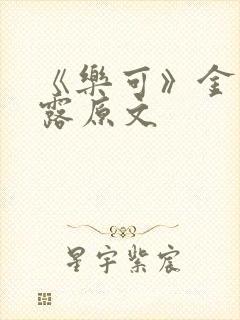 《樂可》金
露原文
星宇紫宸